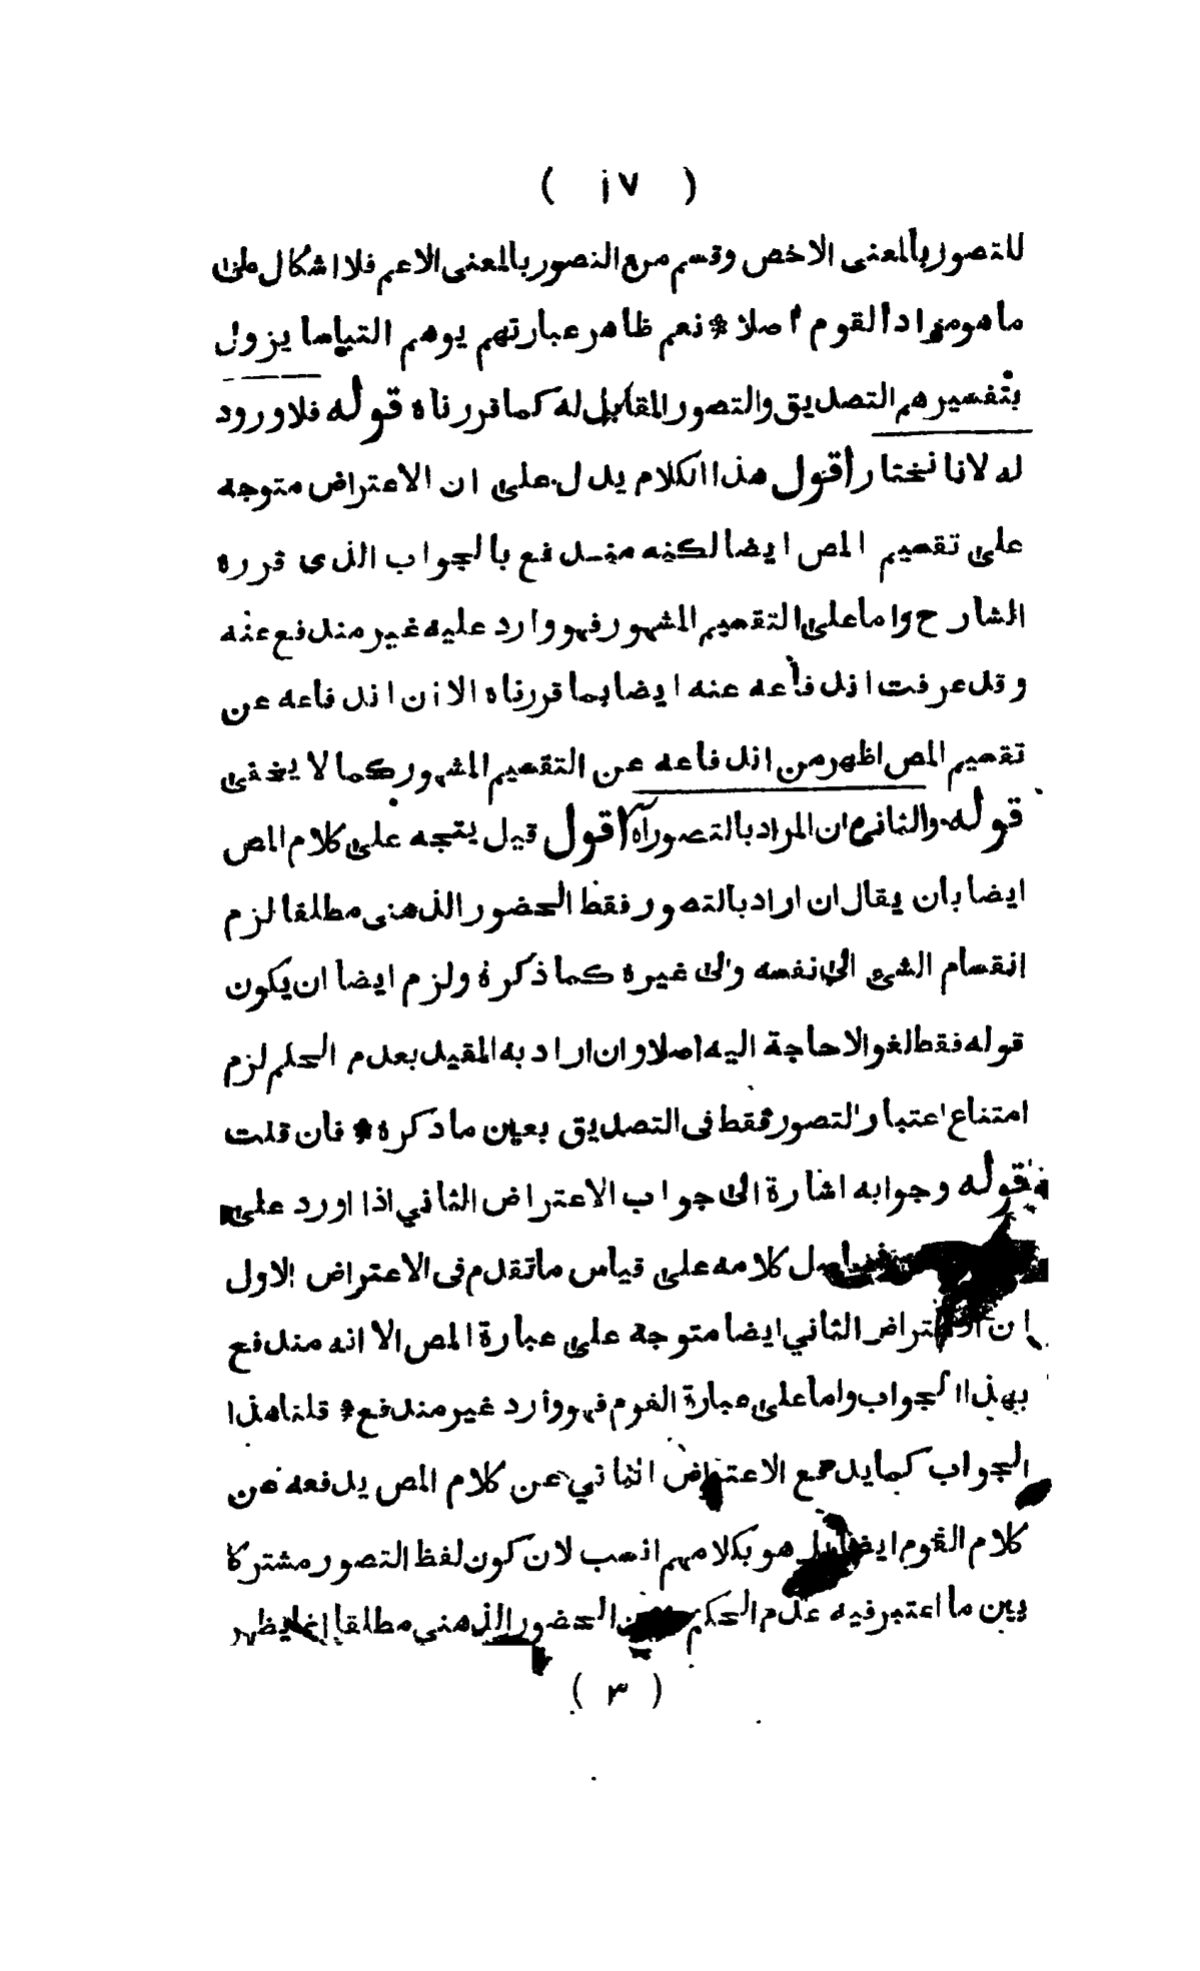 ( ١٧ )
للتصور بالمعنى الاخص وقسم من التصور بالمعنى الاعم فلا اشكال على
ما هو مراد القوم اصلا * نعم ظاهر عبارتهم يوهم التباسا يزول
بتفسيرهم التصديق والتصور المقابل له كما قررناه قوله فلا ورود
له لانا نختار أقول هذا الكلام يدل على ان الاعتراض متوجه
على تقسيم المص ايضا لكنه مندفع بالجواب الذى قرره
الشارح واما على التقسيم المشهور فهو وارد عليه غير مندفع عنه
وقد عرفت اندفاعه عنه ايضا بما قررناه الا ان اندفاعه عن
تقسيم المص اظهر من اندفاعه عن التقسيم المشهور كما لا يخفى
قوله والثانى ان المراد بالتصور آه اقول قيل يتجه على كلام المص
ايضا بان يقال ان اراد بالتصور فقط الحضور الذهنى مطلقا لزم
انقسام الشئ الى نفسه والى غيره كما ذكره ولزم ايضا ان يكون
قوله فقط لغوا لا حاجة اليه اصلا وان اراد به المقيد بعدم الحكم لزم
امتناع اعتبار التصور فقط فى التصديق بعين ما ذكره * فان قلت
قوله وجوابه اشارة الى جواب الاعتراض الثاني اذا اورد على
كلامه على قياس ما تقدم فى الاعتراض الاول
ان الاعتراض الثاني ايضا متوجه على عبارة المص الا انه مندفع
بهذا الجواب واما على عبارة القوم فهو وارد غير مندفع * قلنا هذا
الجواب كما يدفع الاعتراض الثاني عن كلام المص يدفعه عن
كلام القوم ايضا بل هو بكلامهم انسب لان كون لفظ التصور مشتركا
بين ما اعتبر فيه عدم الحكم وبين الحضور الذهني مطلقا انما يظهر
( ٣ )